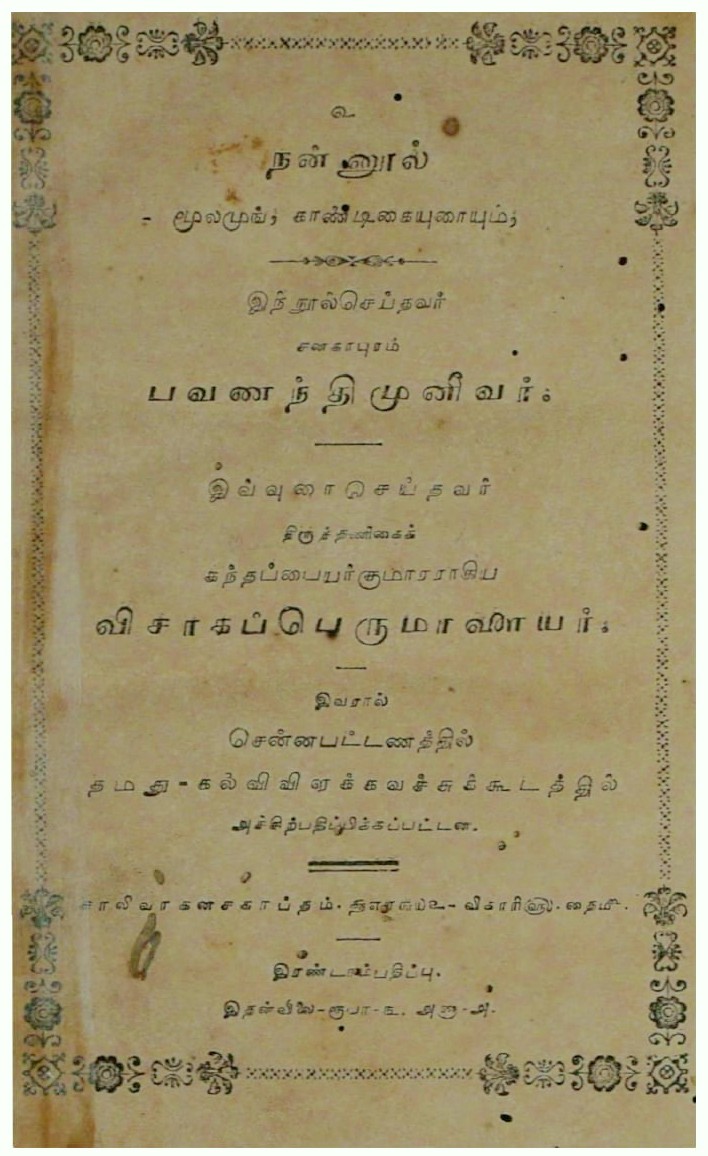 உ
நன்னூல்
மூலமுங், காண்டிகையுரையும்,
இந்நூல்செய்தவர்
சனகாபுரம்
பவணந்திமுனிவர்.
இவ்வுரைசெய்தவர்
திருத்தணிகைக்
கந்தப்பையர்குமாரராகிய
விசாகப்பெருமாளையர்.
இவரால்
சென்னபட்டணத்தில்
தமது - கல்விவிளக்கவச்சுக்கூடத்தில்
அச்சிற்பதிப்பிக்கப்பட்டன.
சாலிவாகனசகாப்தம். விகாரி௵. தை௴.
இரண்டாம்பதிப்பு.
இதன்விலை-ரூபா-௩. அணா-அ.